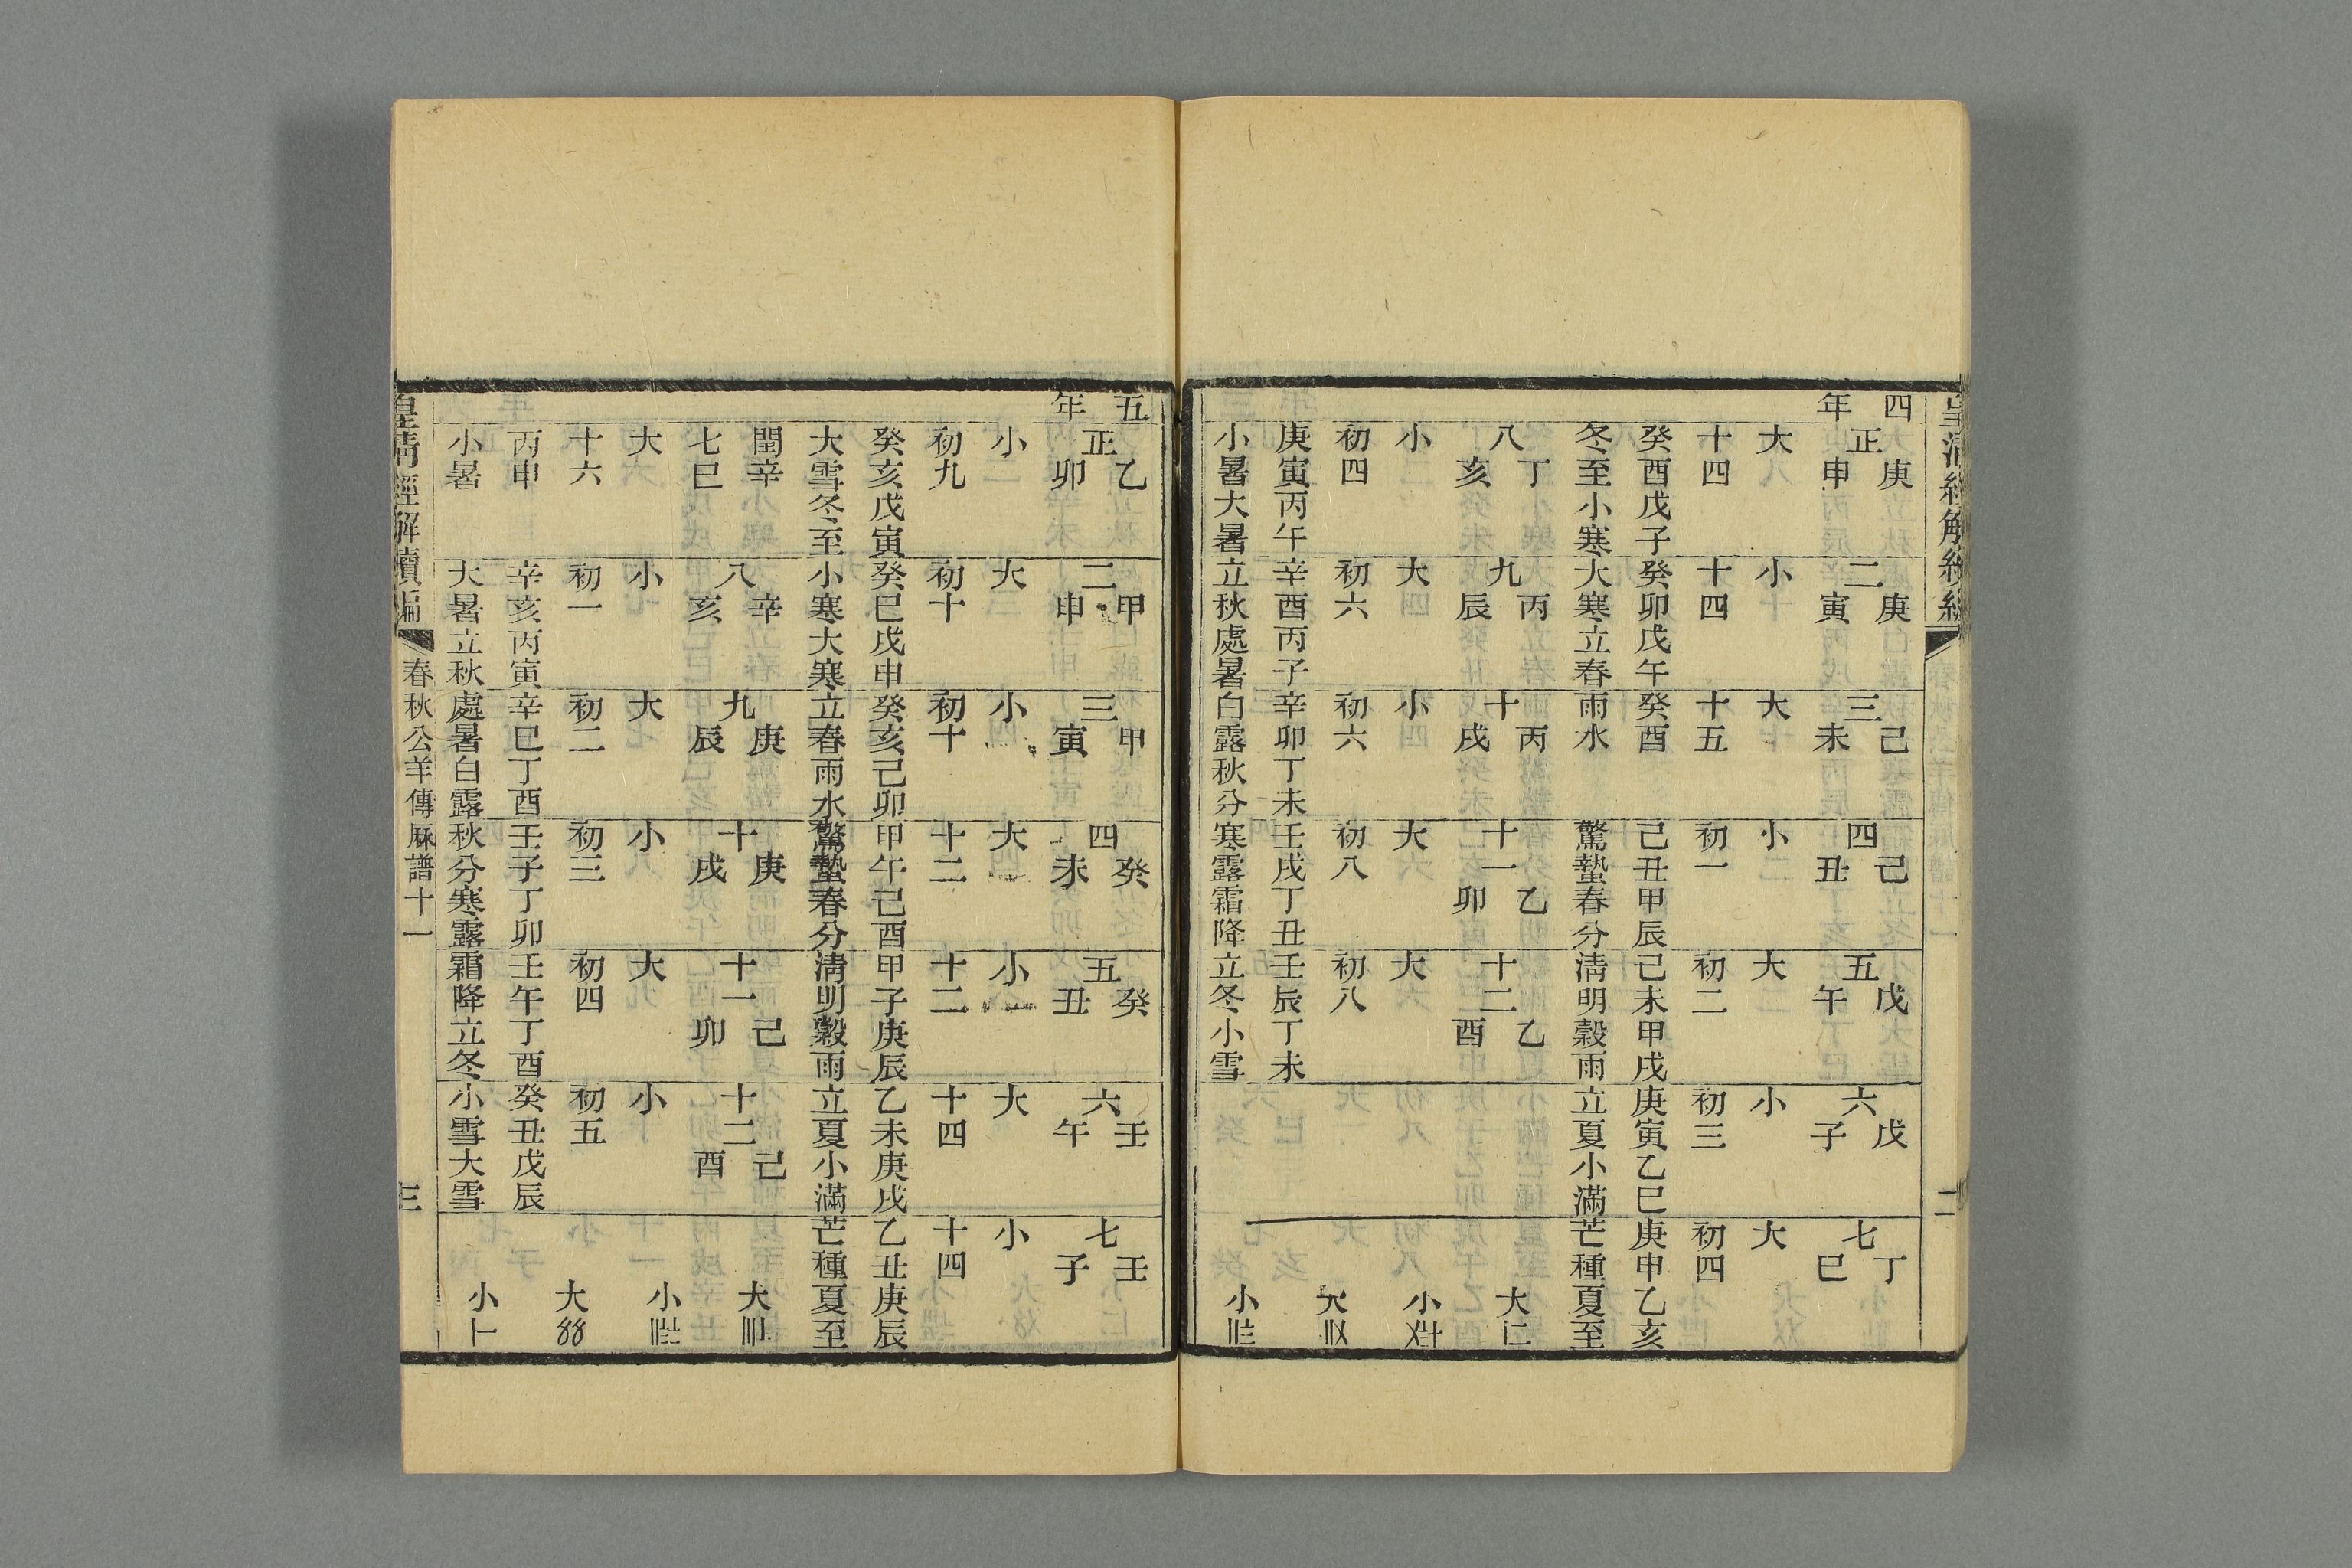 皇清經解續編
二
四年
正 庚申 大 十四 癸酉戊子 冬至小寒
二 庚寅 小 十四 癸卯戊午 大寒立春
三 己未 大 十五 癸酉 雨水
四 己丑 小 初一 己丑甲辰 驚蟄春分
五 戊午 大 初二 己未甲戌 清明穀雨
六 戊子 小 初三 庚寅乙巳 立夏小滿
七 丁巳 大 初四 庚申乙亥 芒種夏至
八 丁亥 小 初四 庚寅丙午 小暑大暑
九 丙辰 大 初六 辛酉丙子 立秋處暑
十 丙戌 小 初六 辛卯丁未 白露秋分
十一 乙卯 大 初八 壬戌丁丑 寒露霜降
十二 乙酉 大 初八 壬辰丁未 立冬小雪
大
小
大
小
五年
正 乙卯 小 初九 癸亥戊寅 大雪冬至
二 甲申 大 初十 癸巳戊申 小寒大寒
三 甲寅 小 初十 癸亥己卯 立春雨水
四 癸未 大 十二 甲午己酉 驚蟄春分
五 癸丑 小 十二 甲子庚辰 清明穀雨
六 壬午 大 十四 乙未庚戌 立夏小滿
七 壬子 小 十四 乙丑庚辰 芒種夏至
閏七 辛巳 大 十六 丙申 小暑
八 辛亥 小 初一 辛亥丙寅 大暑立秋
九 庚辰 大 初二 辛巳丁酉 處暑白露
十 庚戌 小 初三 壬子丁卯 秋分寒露
十一 己卯 大 初四 壬午丁酉 霜降立冬
十二 己酉 小 初五 癸丑戊辰 小雪大雪
大
小
大
小
皇清經解續編
春秋公羊傳厤譜十一
三